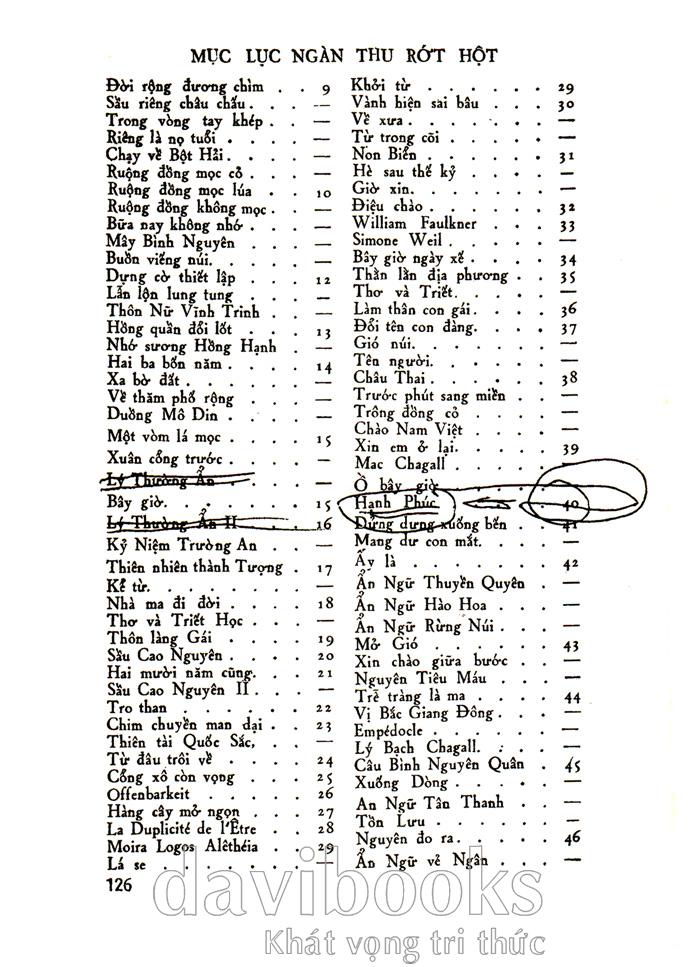 MỤC LỤC NGÀN THU RỚT HỘT
Đời rộng đương chìm . . 9
Sầu riêng châu chấu . . . —
Trong vòng tay khép . . —
Riêng là nọ tuổi . . . . —
Chạy về Bột Hải. . . . —
Ruộng đồng mọc cỏ . . . —
Ruộng đồng mọc lúa . . 10
Ruộng đồng không mọc . . —
Bữa nay không nhớ . . . —
Mây Bình Nguyên . . . —
Buồn viếng núi. . . . . —
Dựng cờ thiết lập . . . 12
Lẫn lộn lung tung . . . —
Thôn Nữ Vĩnh Trinh . . . —
Hồng quần đổi lốt . . . 13
Nhớ sương Hồng Hạnh . —
Hai ba bốn năm . . . . 14
Xa bờ đất . . . . . . —
Về thăm phố rộng . . . —
Duồng Mô Din . . . . . —
Một vòm lá mọc . . . . 15
Xuân cổng trước . . . . —
Lý Thường Ẩn . . . . —
Bây giờ. . . . . . . 15
Lý Thường Ẩn II . . . 16
Kỷ Niệm Trường An . . . —
Thiên nhiên thành Tượng . 17
Kể từ. . . . . . . . —
Nhà ma đi đời . . . . 18
Thơ và Triết Học . . . . —
Thôn làng Gái . . . . 19
Sầu Cao Nguyên . . . . 20
Hai mười năm cũng. . . 21
Sầu Cao Nguyên II . . . —
Tro than . . . . . . 22
Chim chuyền man dại . . 23
Thiên tài Quốc Sắc, . . . —
Từ đâu trôi về . . . . 24
Cổng xô còn vọng . . . 25
Offenbarkeit . . . . . 26
Hàng cây mở ngọn . . . 27
La Duplicité de l'Être . . 28
Moira Logos Alêthéia . . 29
Lá se . . . . . . . —
126
Khởi từ . . . . . . . 29
Vành hiện sai bâu . . . 30
Về xưa . . . . . . . —
Từ trong cõi . . . . . —
Non Biển . . . . . . 31
Hè sau thế kỷ . . . . —
Giờ xin. . . . . . . —
Điệu chào . . . . . . 32
William Faulkner . . . 33
Simone Weil . . . . . —
Bây giờ ngày xế . . . . 34
Thằn lằn địa phương . . 35
Thơ và Triết. . . . . —
Làm thân con gái. . . . 36
Đổi tên con đàng. . . . 37
Gió núi. . . . . . . —
Tên người. . . . . . —
Châu Thai . . . . . . 38
Trước phút sang miền . . —
Trông đồng cỏ . . . . —
Chào Nam Việt . . . . —
Xin em ở lại. . . . . 39
Mac Chagall . . . . . —
Ồ bây giờ . . . . . —
Hạnh Phúc . . . . 40
Dửng dưng xuống bến . . 41
Mang dư con mắt. . . . —
Ấy là . . . . . . . 42
Ẩn Ngữ Thuyền Quyên . —
Ẩn Ngữ Hào Hoa . . . —
Ẩn Ngữ Rừng Núi . . . —
Mở Gió . . . . . . 43
Xin chào giữa bước . . . —
Nguyên Tiêu Máu . . . —
Trễ tràng là ma . . . . 44
Vị Bắc Giang Đông. . . . —
Empédocle . . . . . . —
Lý Bạch Chagall. . . . —
Câu Bình Nguyên Quân . 45
Xuống Dòng . . . . . —
Ẩn Ngữ Tân Thanh . . . —
Tồn Lưu . . . . . . —
Nguyên đo ra. . . . . 46
Ẩn Ngữ vẻ Ngân . . . —
davibooks
Khát vọng tri thức